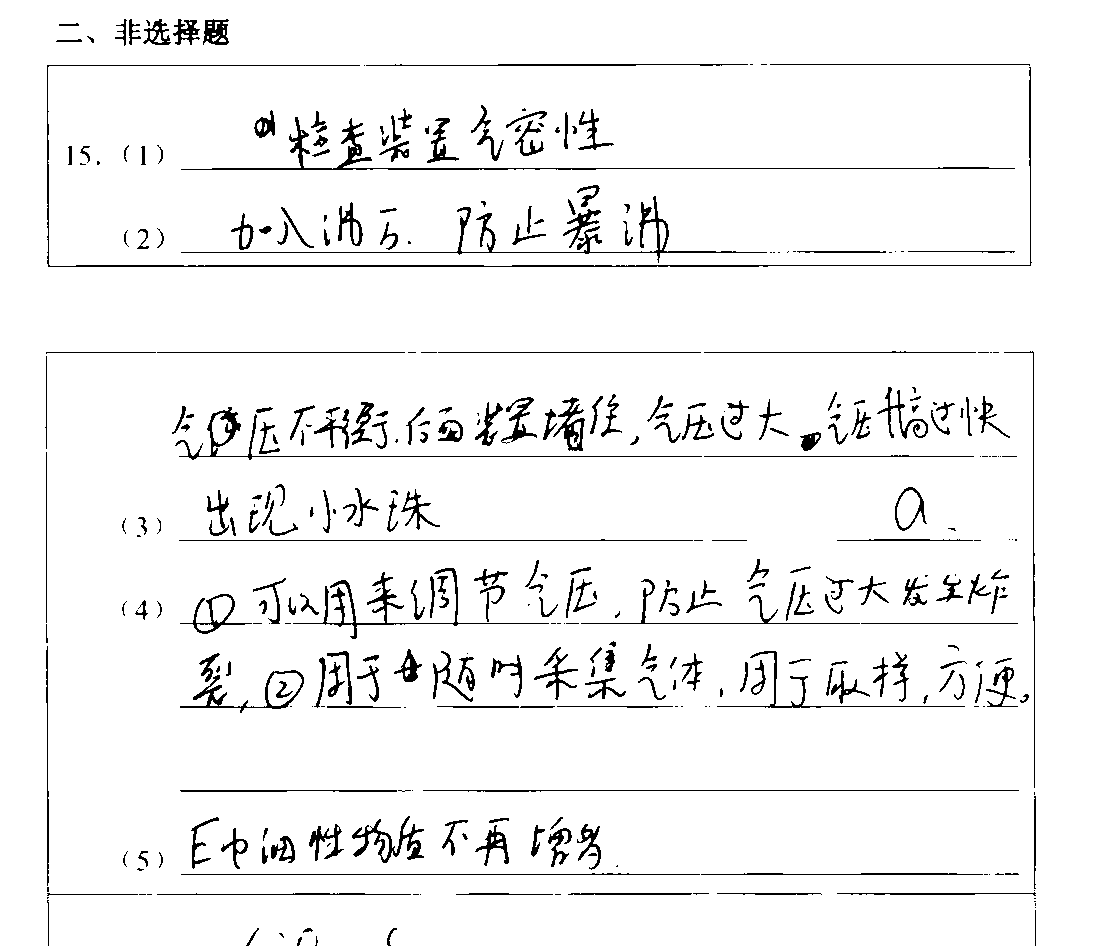 二、非选择题
15.(1) 检查装置气密性
(2) 加入沸石. 防止暴沸
气压不平衡.后面装置堵住,气压过大 气压升高过快
(3) 出现小水珠 a.
(4) ①可以用来调节气压,防止气压过大发生炸
裂,②用于随时采集气体,用于取样,方便。
(5) E中油性物质不再增多.